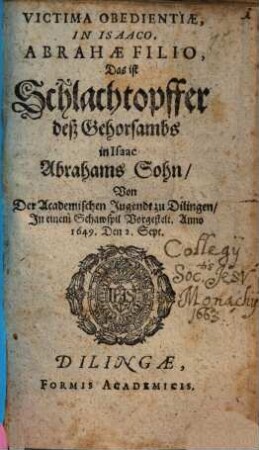 VICTIMA OBEDIENTIÆ,
IN ISAACO,
ABRAHÆ FILIO,
Das ist
Schlachtopffer
deß Gehorsambs
in Isaac
Abrahams Sohn/
Von
Der Academischen Jugendt zu Dilingen/
In einem Schawspil Vorgestelt. Anno
1649. Den 2. Sept.
Collegij
Soc.tis Jesu
Monachij
1663.
IHS
DILINGÆ,
FORMIS ACADEMICIS.